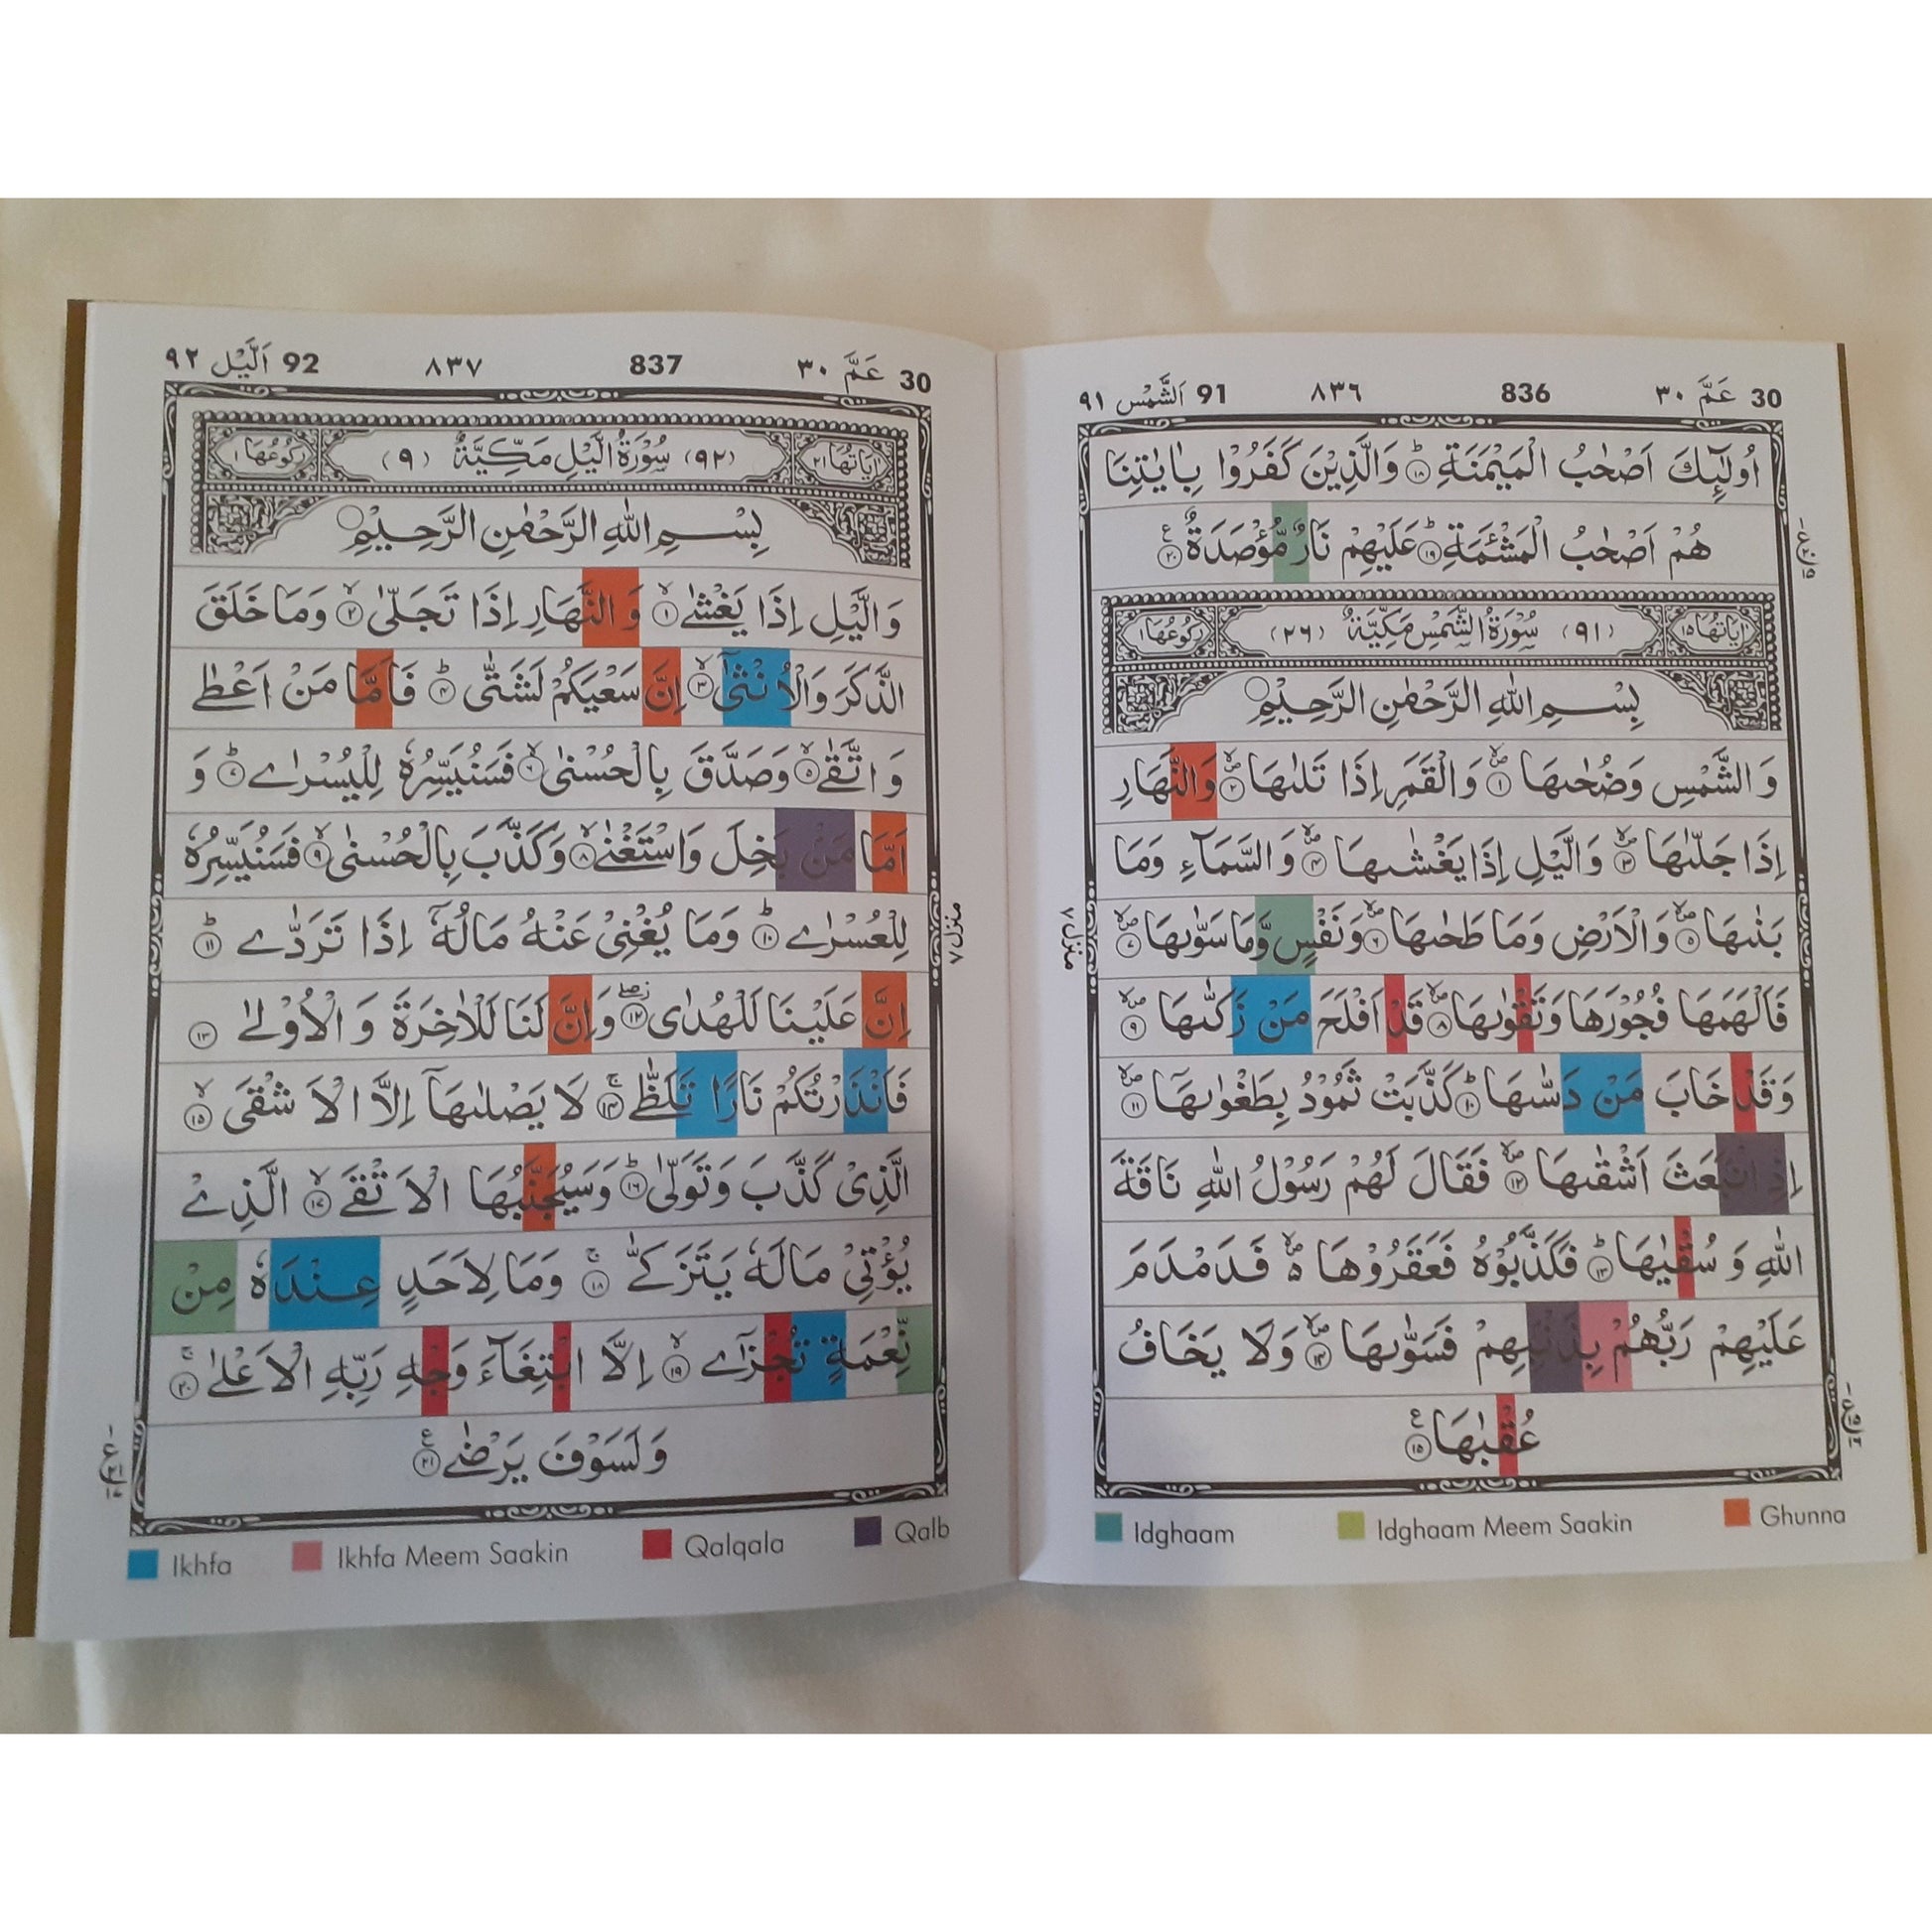 30 عَمَّ ٣٠ 836 ٨٣٦ 91 اَلشَّمْس ٩١
اُولٰٓئِكَ اَصْحٰبُ الْمَيْمَنَةِ ۱۸ وَالَّذِيْنَ كَفَرُوْا بِاٰيٰتِنَا
هُمْ اَصْحٰبُ الْمَشْـَٔمَةِ ۱۹ عَلَيْهِمْ نَارٌ مُّؤْصَدَةٌ ۲۰
اٰيَاتُهَا ١٥ (٩١) سُوْرَةُ الشَّمْسِ مَكِّيَّةٌ (٢٦) رُكُوْعُهَا ١
بِسْمِ اللّٰهِ الرَّحْمٰنِ الرَّحِيْمِ
وَالشَّمْسِ وَضُحٰىهَا ۱ وَالْقَمَرِ اِذَا تَلٰىهَا ۲ وَالنَّهَارِ
اِذَا جَلّٰىهَا ۳ وَالَّيْلِ اِذَا يَغْشٰىهَا ۴ وَالسَّمَآءِ وَمَا
بَنٰىهَا ۵ وَالْاَرْضِ وَمَا طَحٰىهَا ۶ وَنَفْسٍ وَّمَا سَوّٰىهَا ۷
فَاَلْهَمَهَا فُجُوْرَهَا وَتَقْوٰىهَا ۸ قَدْ اَفْلَحَ مَنْ زَكّٰىهَا ۹
وَقَدْ خَابَ مَنْ دَسّٰىهَا ۱۰ كَذَّبَتْ ثَمُوْدُ بِطَغْوٰىهَآ ۱۱
اِذِ انْۢبَعَثَ اَشْقٰىهَا ۱۲ فَقَالَ لَهُمْ رَسُوْلُ اللّٰهِ نَاقَةَ
اللّٰهِ وَسُقْيٰهَا ۱۳ فَكَذَّبُوْهُ فَعَقَرُوْهَا فَدَمْدَمَ
عَلَيْهِمْ رَبُّهُمْ بِذَنْۢبِهِمْ فَسَوّٰىهَا ۱۴ وَلَا يَخَافُ
عُقْبٰهَا ۱۵
منزل ٧
Idghaam Idghaam Meem Saakin Ghunna
30 عَمَّ ٣٠ 837 ٨٣٧ 92 اَلَّيْل ٩٢
اٰيَاتُهَا ٢١ (٩٢) سُوْرَةُ الَّيْلِ مَكِّيَّةٌ (٩) رُكُوْعُهَا ١
بِسْمِ اللّٰهِ الرَّحْمٰنِ الرَّحِيْمِ
وَالَّيْلِ اِذَا يَغْشٰى ۱ وَالنَّهَارِ اِذَا تَجَلّٰى ۲ وَمَا خَلَقَ
الذَّكَرَ وَالْاُنْثٰٓى ۳ اِنَّ سَعْيَكُمْ لَشَتّٰى ۴ فَاَمَّا مَنْ اَعْطٰى
وَاتَّقٰى ۵ وَصَدَّقَ بِالْحُسْنٰى ۶ فَسَنُيَسِّرُهٗ لِلْيُسْرٰى ۷ وَ
اَمَّا مَنْۢ بَخِلَ وَاسْتَغْنٰى ۸ وَكَذَّبَ بِالْحُسْنٰى ۹ فَسَنُيَسِّرُهٗ
لِلْعُسْرٰى ۱۰ وَمَا يُغْنِىْ عَنْهُ مَالُهٗٓ اِذَا تَرَدّٰى ۱۱
اِنَّ عَلَيْنَا لَلْهُدٰى ۱۲ وَاِنَّ لَنَا لَلْاٰخِرَةَ وَالْاُوْلٰى ۱۳
فَاَنْذَرْتُكُمْ نَارًا تَلَظّٰى ۱۴ لَا يَصْلٰىهَآ اِلَّا الْاَشْقَى ۱۵
الَّذِىْ كَذَّبَ وَتَوَلّٰى ۱۶ وَسَيُجَنَّبُهَا الْاَتْقَى ۱۷ الَّذِىْ
يُؤْتِىْ مَالَهٗ يَتَزَكّٰى ۱۸ وَمَا لِاَحَدٍ عِنْدَهٗ مِنْ
نِّعْمَةٍ تُجْزٰٓى ۱۹ اِلَّا ابْتِغَآءَ وَجْهِ رَبِّهِ الْاَعْلٰى ۲۰
وَلَسَوْفَ يَرْضٰى ۲۱
منزل ٧
Ikhfa Ikhfa Meem Saakin Qalqala Qalb